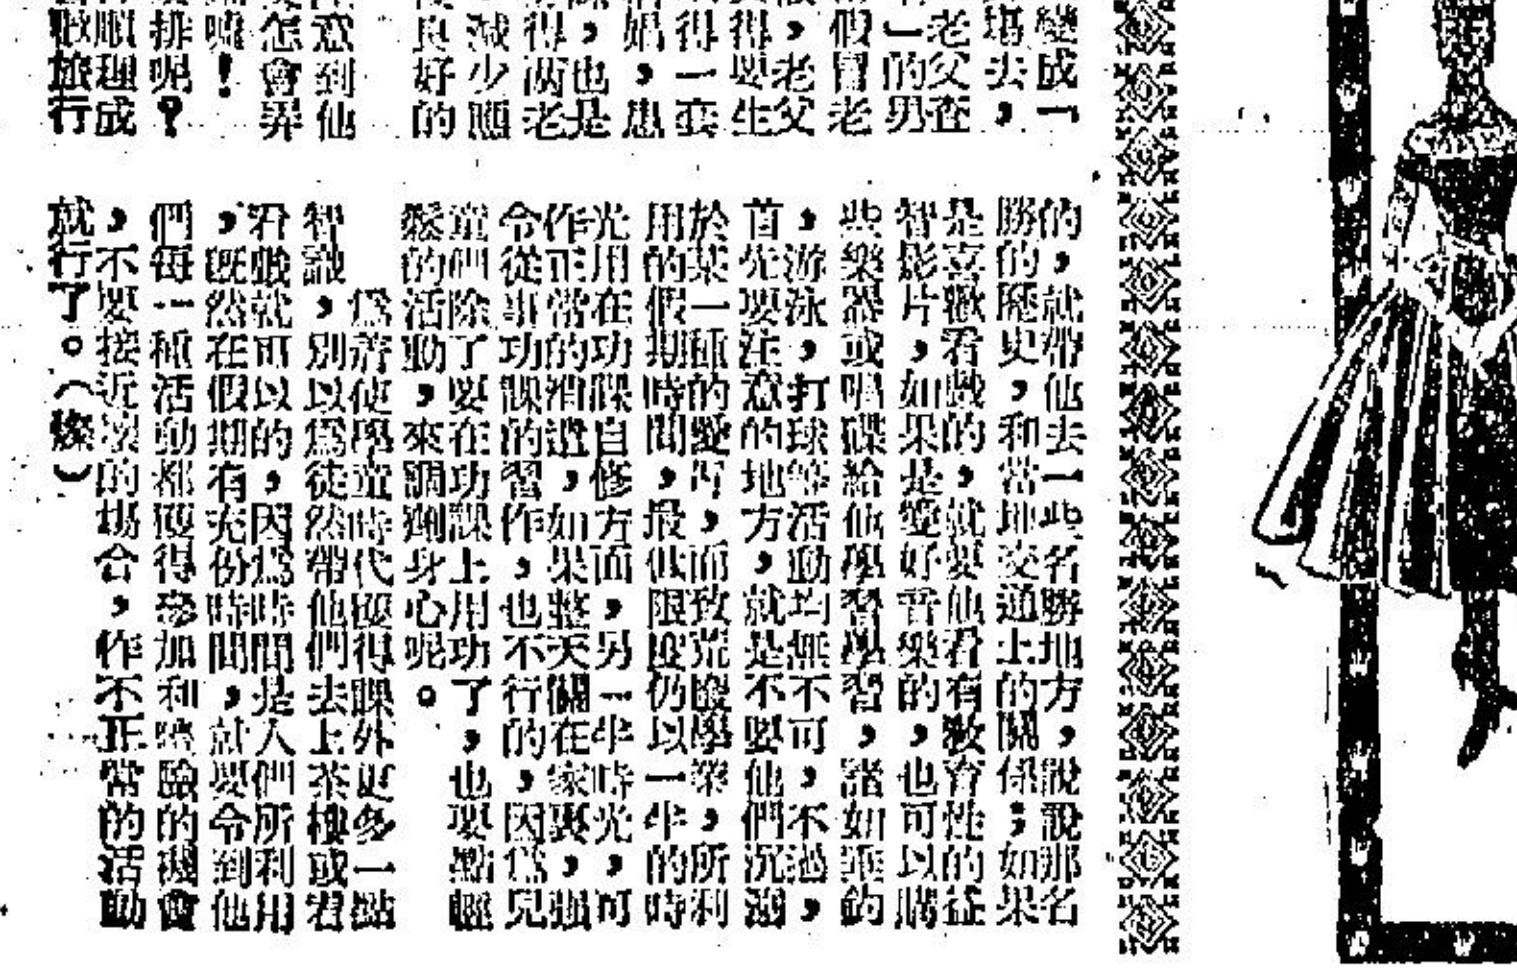 變成一
場去，
老父查
」的男
假冒老
，老父
得，要生
得一套
娼，患
，也是
得两老
減少應
良好的
意到他
怎會弄
嘯！
排呢？
順理成
散旅行
的，就帶他去一些名勝地方，說說那名
勝的歷史，和當地交通上的關係；如果
是喜歡看戲的，就要他看有敎育性的益
智影片，如果是愛好音樂的，也可以購
些樂器或唱碟給他學習學習，諸如垂釣
，游泳，打球等活動均無不可，不過，
首先要注意的地方，就是不要他們沉溺
於某一種的愛好，而致荒廢學業，所利
用的假期時間，最低限度仍以一半的時
光用在功課自修方面，另一半時光，可
作正常的消遣，如果整天關在家裏，強
令從事功課的習作，也不行的，因爲兒
童們除了要在功課上用功了，也要點輕
鬆的活動，來調劑身心呢。
爲着使學童時代獲得課外更多一點
智識，別以爲徒然帶他們去上茶樓或看
看戲就可以的，因爲時間是人們所利用
，既然在假期有充份時間，就要令到他
們每一種活動都獲得參加和體驗的機會
，不要接近壞的場合，作不正常的活動
就行了。（燦）